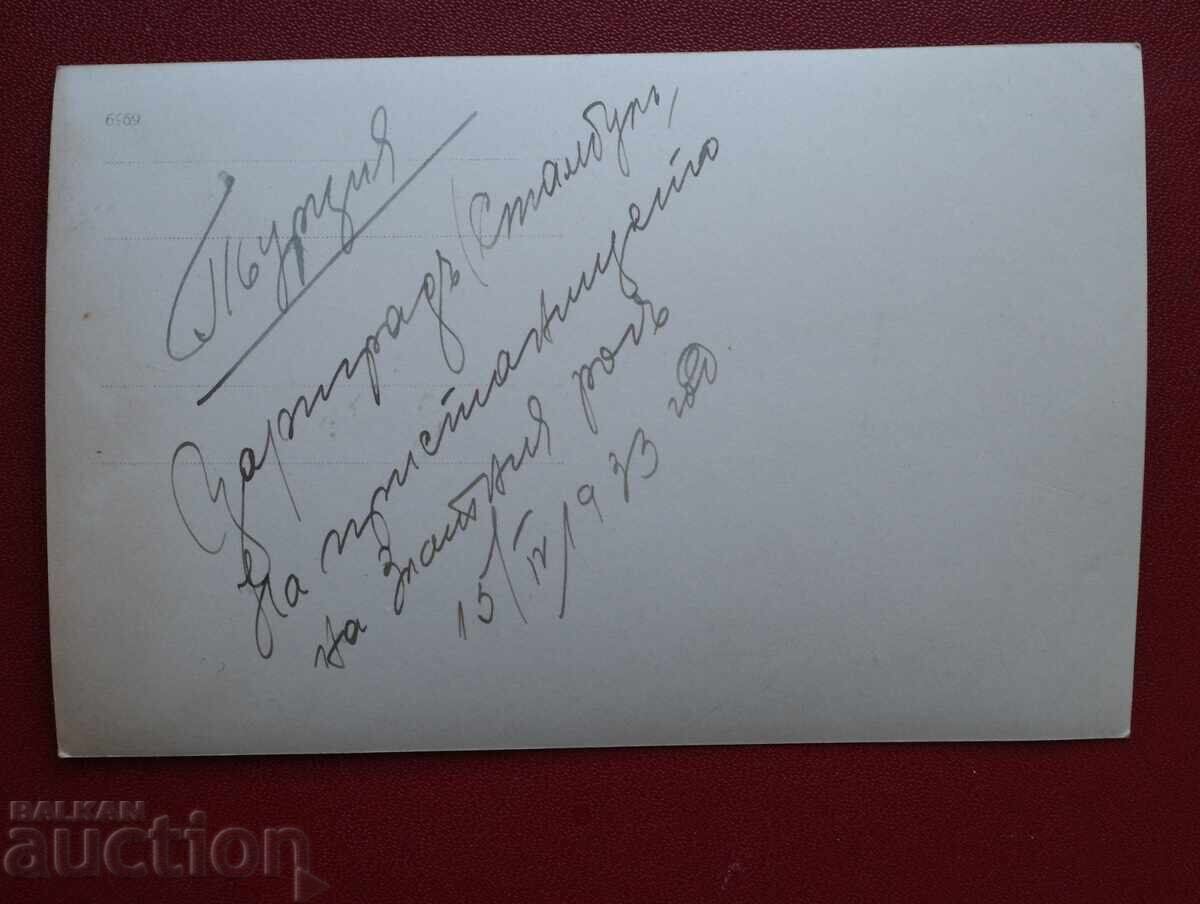 6969
Турция
Цариградъ/Стамбулъ,
На пристанището
на Златния рогъ
15/IV/1933 год
BALKAN
auction